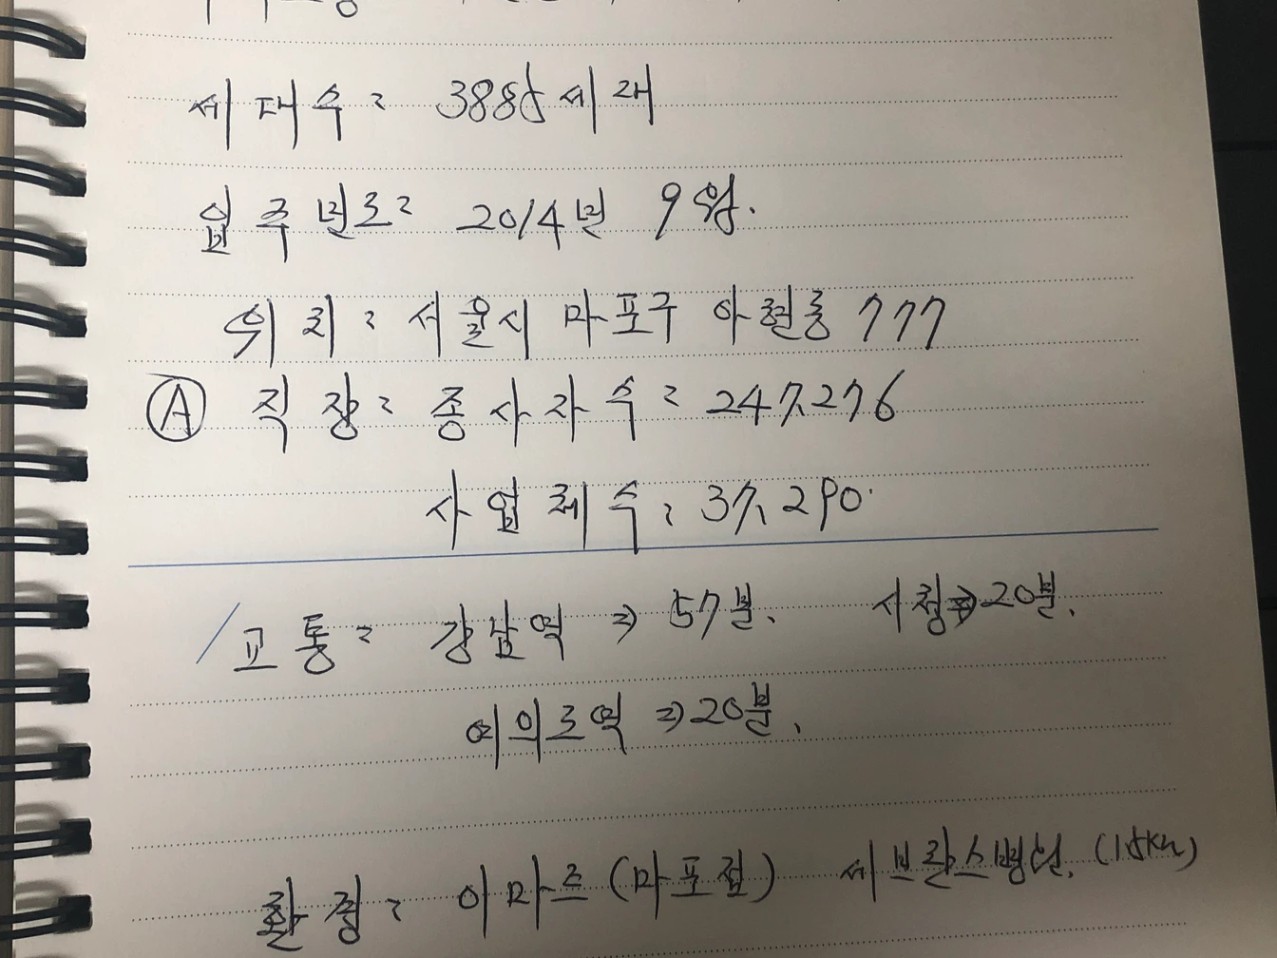 세대수: 3885세대
입주년도: 2014년 9월.
위치: 서울시 마포구 아현동 777
Ⓐ 직장: 종사자수: 247,276
사업체수: 37,290
교통: 강남역 ⇒ 57분. 시청⇒20분.
여의도역 ⇒20분.
환경: 이마트(마포점) 세브란스병원. (1.5km)